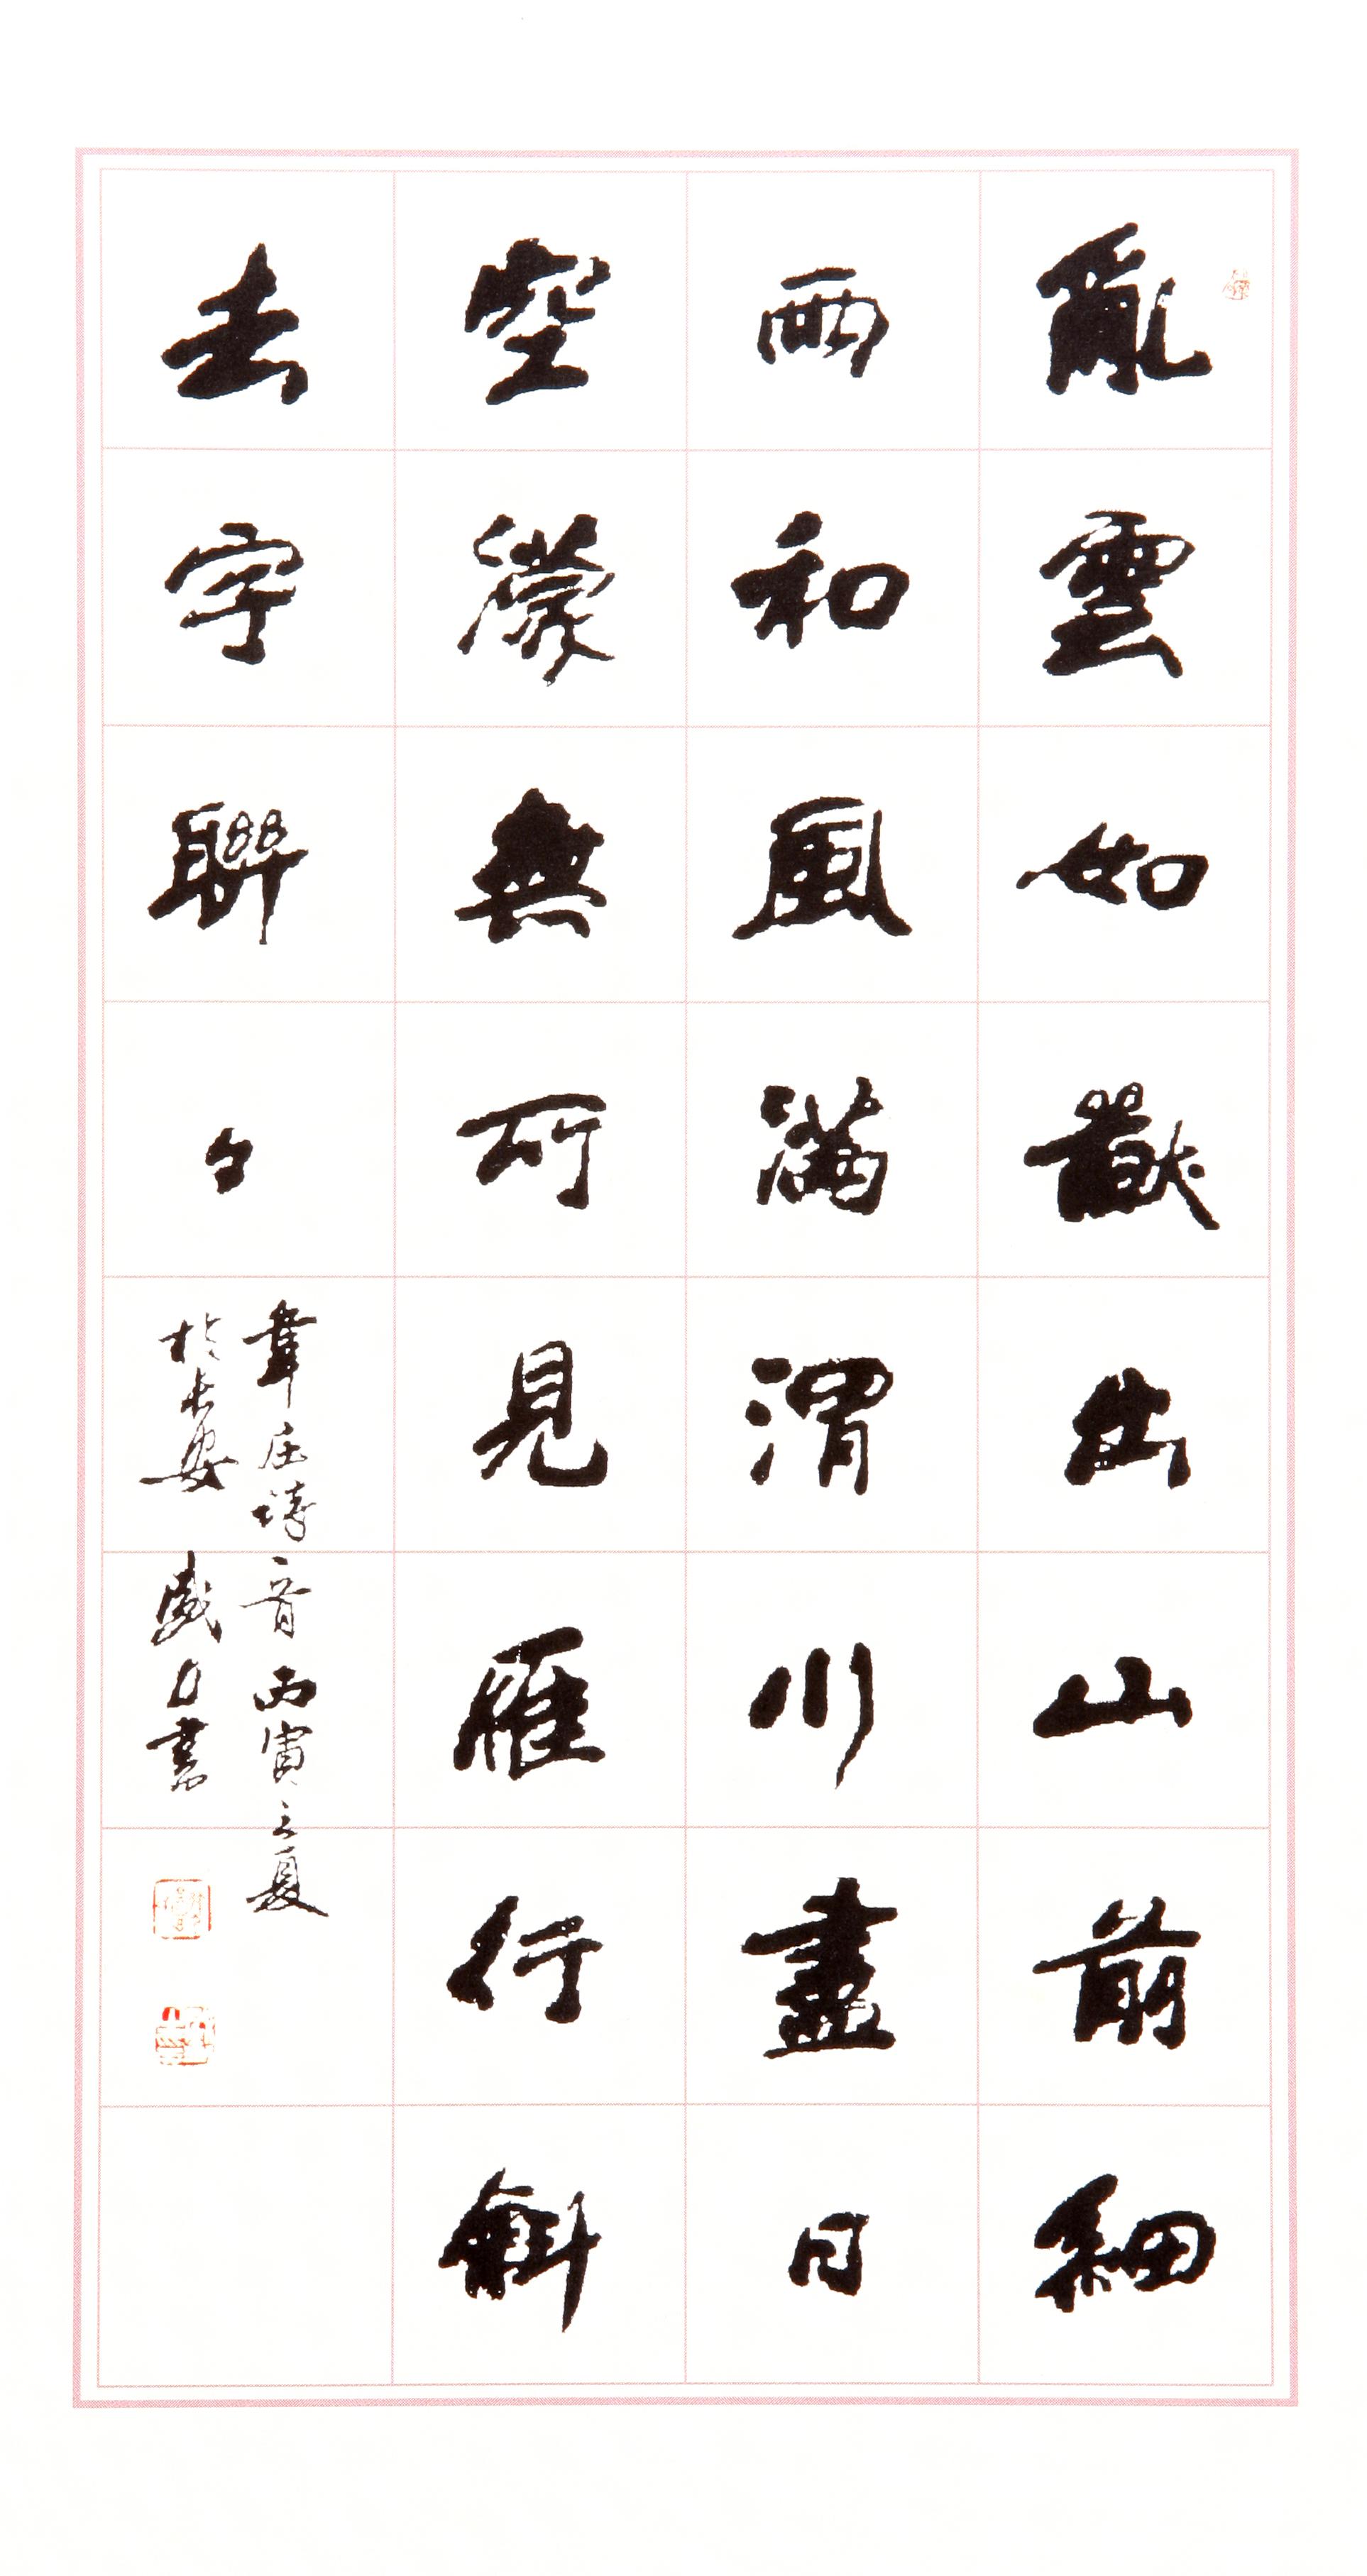 亂雲如獸出山前細
雨和風滿渭川盡日
空濛無可見雁行斜
去字聯々
韋庄詩一首丙寅之夏
於長安
書